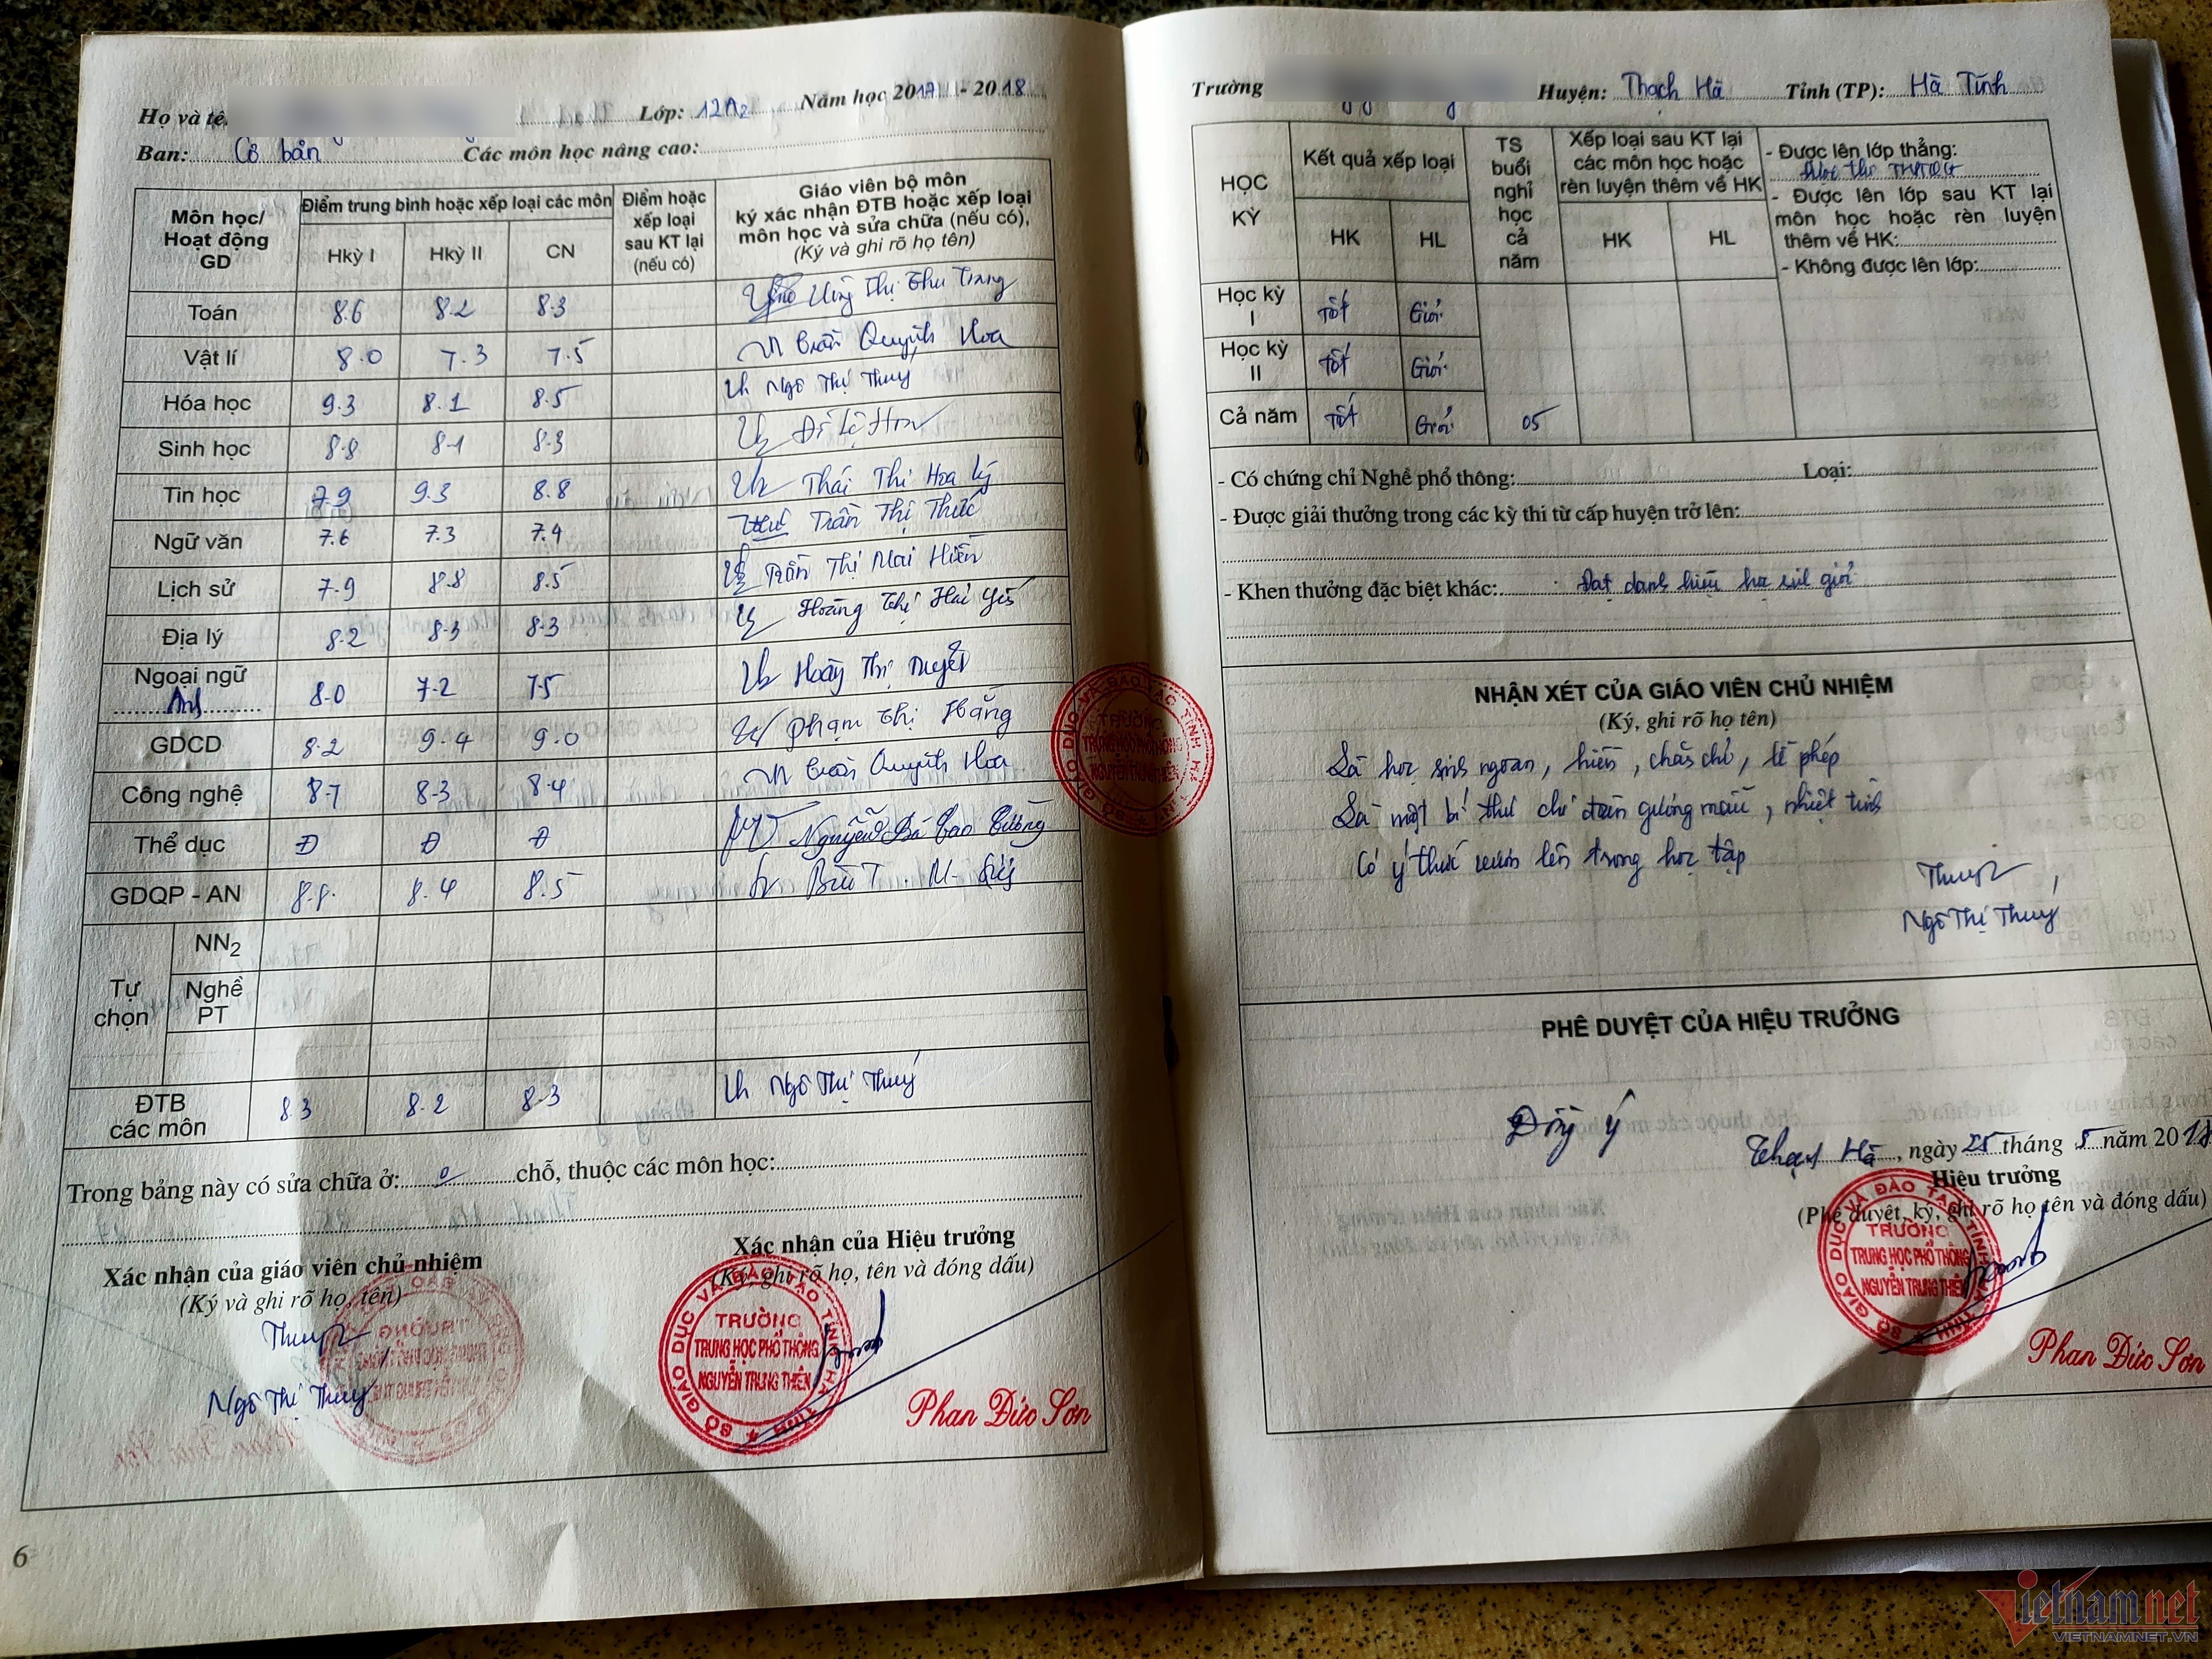 Họ và tê
Lớp: 12A2
Năm học 2017 - 2018
Ban: Cơ bản
Các môn học nâng cao:
Môn học/ Hoạt động GD
Điểm trung bình hoặc xếp loại các môn
Hkỳ I Hkỳ II CN
Điểm hoặc xếp loại sau KT lại (nếu có)
Giáo viên bộ môn
ký xác nhận ĐTB hoặc xếp loại
môn học và sửa chữa (nếu có),
(Ký và ghi rõ họ tên)
Toán 8.6 8.2 8.3 Thị Thu Trang
Vật lí 8.0 7.3 7.5 Trần Quỳnh Hoa
Hóa học 9.3 8.1 8.5 Ngô Thị Thuý
Sinh học 8.8 8.1 8.3
Tin học 7.9 9.3 8.8 Thái Thị Hoa Lý
Ngữ văn 7.6 7.3 7.4 Trần Thị Thức
Lịch sử 7.9 8.8 8.5 Trần Thị Mai Hiền
Địa lý 8.2 8.3 8.3 Hoàng Thị Hải Yến
Ngoại ngữ Anh 8.0 7.2 7.5 Hoàng Thị Duyệt
GDCD 8.2 9.4 9.0 Phạm Thị Hằng
Công nghệ 8.7 8.3 8.4 Trần Quỳnh Hoa
Thể dục Đ Đ Đ Nguyễn Bá Cao Cường
GDQP - AN 8.8 8.4 8.5
Tự chọn
NN2
Nghề PT
ĐTB các môn 8.3 8.2 8.3 Ngô Thị Thuý
Trong bảng này có sửa chữa ở: 0 chỗ, thuộc các môn học:
Xác nhận của giáo viên chủ nhiệm
(Ký và ghi rõ họ, tên)
Ngô Thị Thuý
Xác nhận của Hiệu trưởng
(Ký, ghi rõ họ, tên và đóng dấu)
SỞ GIÁO DỤC VÀ ĐÀO TẠO TỈNH HÀ TĨNH
TRƯỜNG
TRUNG HỌC PHỔ THÔNG
NGUYỄN TRUNG THIÊN
Phan Đức Sơn
6
Trường
Huyện: Thạch Hà
Tỉnh (TP): Hà Tĩnh
HỌC KỲ
Kết quả xếp loại
HK HL
TS buổi nghỉ học cả năm
Xếp loại sau KT lại các môn học hoặc rèn luyện thêm về HK
HK HL
- Được lên lớp thẳng:
Được thi THPTQG
- Được lên lớp sau KT lại
môn học hoặc rèn luyện
thêm về HK:
- Không được lên lớp:
Học kỳ I Tốt Giỏi
Học kỳ II Tốt Giỏi
Cả năm Tốt Giỏi 05
- Có chứng chỉ Nghề phổ thông: Loại:
- Được giải thưởng trong các kỳ thi từ cấp huyện trở lên:
- Khen thưởng đặc biệt khác: Đạt danh hiệu học sinh giỏi
NHẬN XÉT CỦA GIÁO VIÊN CHỦ NHIỆM
(Ký, ghi rõ họ tên)
Là học sinh ngoan, hiền, chăm chỉ, lễ phép
Là một bí thư chi đoàn gương mẫu, nhiệt tình
Có ý thức vươn lên trong học tập
Ngô Thị Thuý
PHÊ DUYỆT CỦA HIỆU TRƯỞNG
Đồng ý
Thạch Hà, ngày 25 tháng 5 năm 2018
Hiệu trưởng
(Phê duyệt, ký, ghi rõ họ tên và đóng dấu)
SỞ GIÁO DỤC VÀ ĐÀO TẠO TỈNH HÀ TĨNH
TRƯỜNG
TRUNG HỌC PHỔ THÔNG
NGUYỄN TRUNG THIÊN
Phan Đức Sơn
SỞ GIÁO DỤC VÀ ĐÀO TẠO TỈNH HÀ TĨNH
TRƯỜNG
TRUNG HỌC PHỔ THÔNG
NGUYỄN TRUNG THIÊN
Vietnamnet
VIETNAMNET.VN